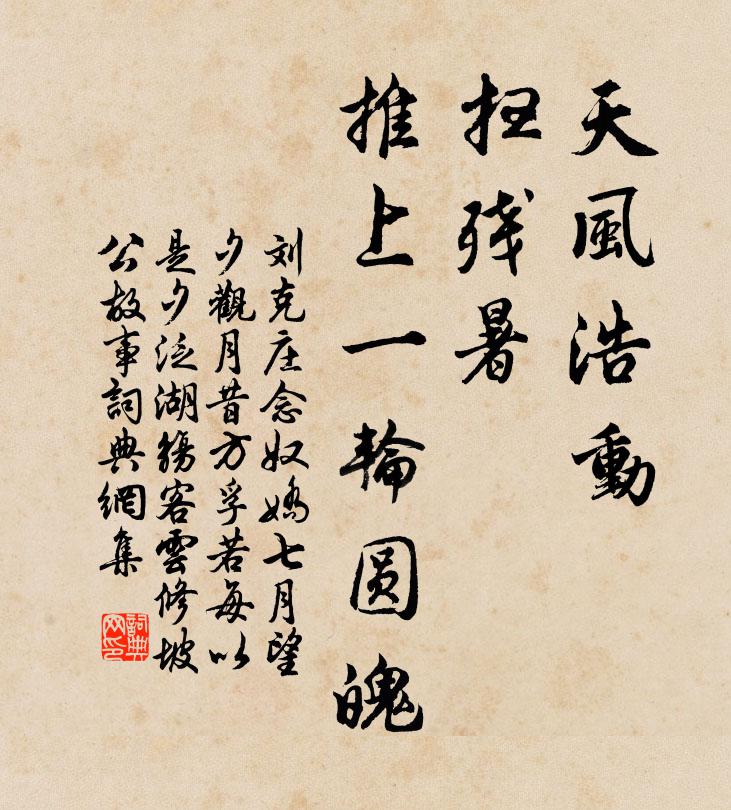 天風浩動
扫残暑
推上一輪圆魄
刘克庄念奴嬌七月望
夕觀月昔方孚若每以
是夕泛湖觴客雲修坡
公故事詞典網集
詞典
网印